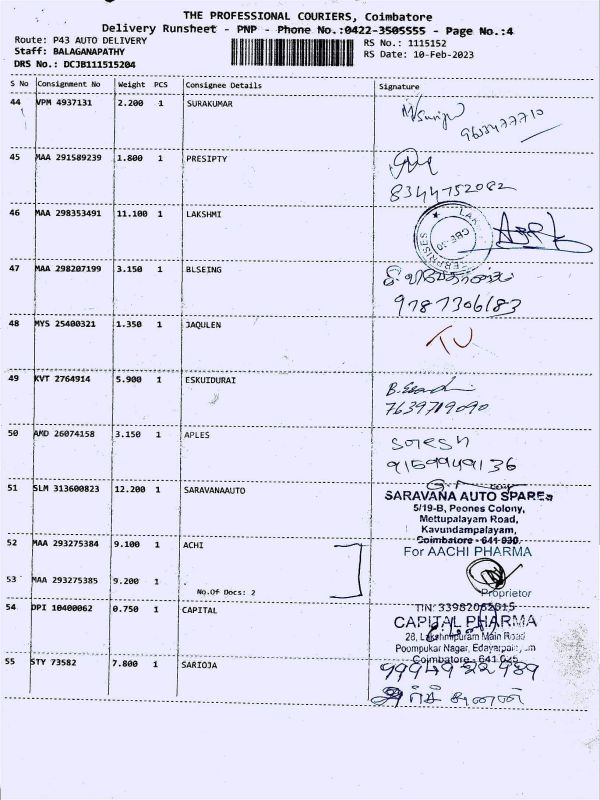 THE PROFESSIONAL COURIERS, Coimbatore
Delivery Runsheet - PNP - Phone No.:0422-3505555 - Page No.:4
Route: P43 AUTO DELIVERY RS No.: 1115152
Staff: BALAGANAPATHY RS Date: 10-Feb-2023
DRS No.: DCJB111515204
S No Consignment No Weight PCS Consignee Details Signature
44 VPM 4937131 2.200 1 SURAKUMAR
45 MAA 291589239 1.800 1 PRESIPTY
8344752082
46 MAA 298353491 11.100 1 LAKSHMI
47 MAA 298207199 3.150 1 BLSEING
9787306183
48 MYS 25400321 1.350 1 JAQULEN
TU
49 KVT 2764914 5.900 1 ESKUIDURAI
7639719090
50 AMD 26074158 3.150 1 APLES
soresh
9159949136
51 SLM 313600823 12.200 1 SARAVANAAUTO
SARAVANA AUTO SPARES
5/19-B, Peones Colony,
Mettupalayam Road,
Kavundampalayam,
Coimbatore - 641 030.
52 MAA 293275384 9.100 1 ACHI
For AACHI PHARMA
53 MAA 293275385 9.200 1
No.Of Docs: 2
Proprietor
54 DPI 10400062 0.750 1 CAPITAL
CAPITAL PHARMA
28, Lakshmipuram Main Road
Poompukar Nagar, Edayarpalayam
Coimbatore - 641 025
55 STY 73582 7.800 1 SARIOJA